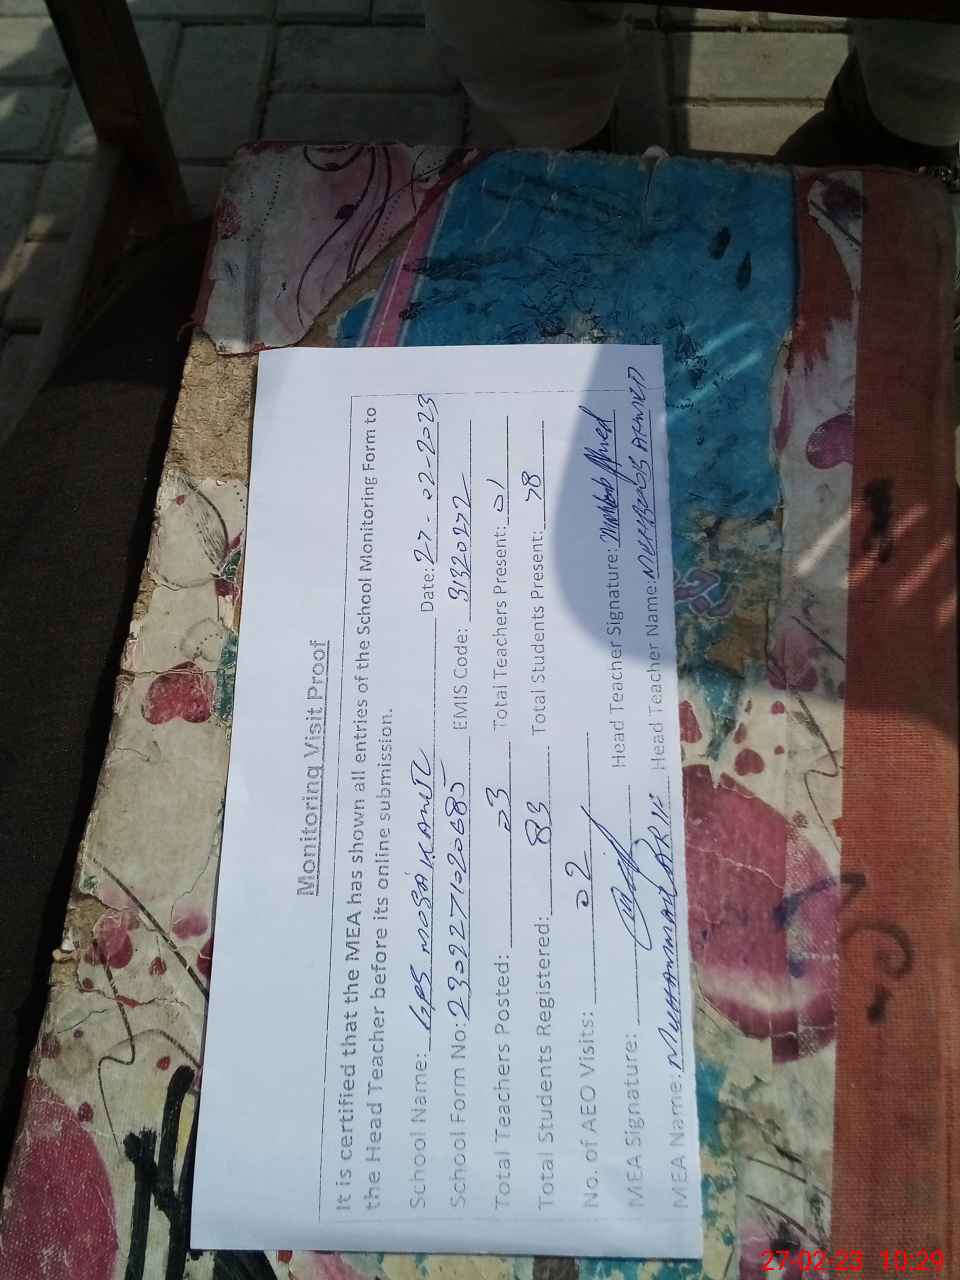 Monitoring Visit Proof
It is certified that the MEA has shown all entries of the School Monitoring Form to
the Head Teacher before its online submission.
School Name: GPS Date: 27-02-2023
School Form No: 2302271020685 EMIS Code: 31320272
Total Teachers Posted: 03 Total Teachers Present: 01
Total Students Registered: 83 Total Students Present: 78
No. of AEO Visits: 02
MEA Signature: Head Teacher Signature: Ahmed
MEA Name: MUHAMMAD Head Teacher Name: AHMED
27-02-23 10:29